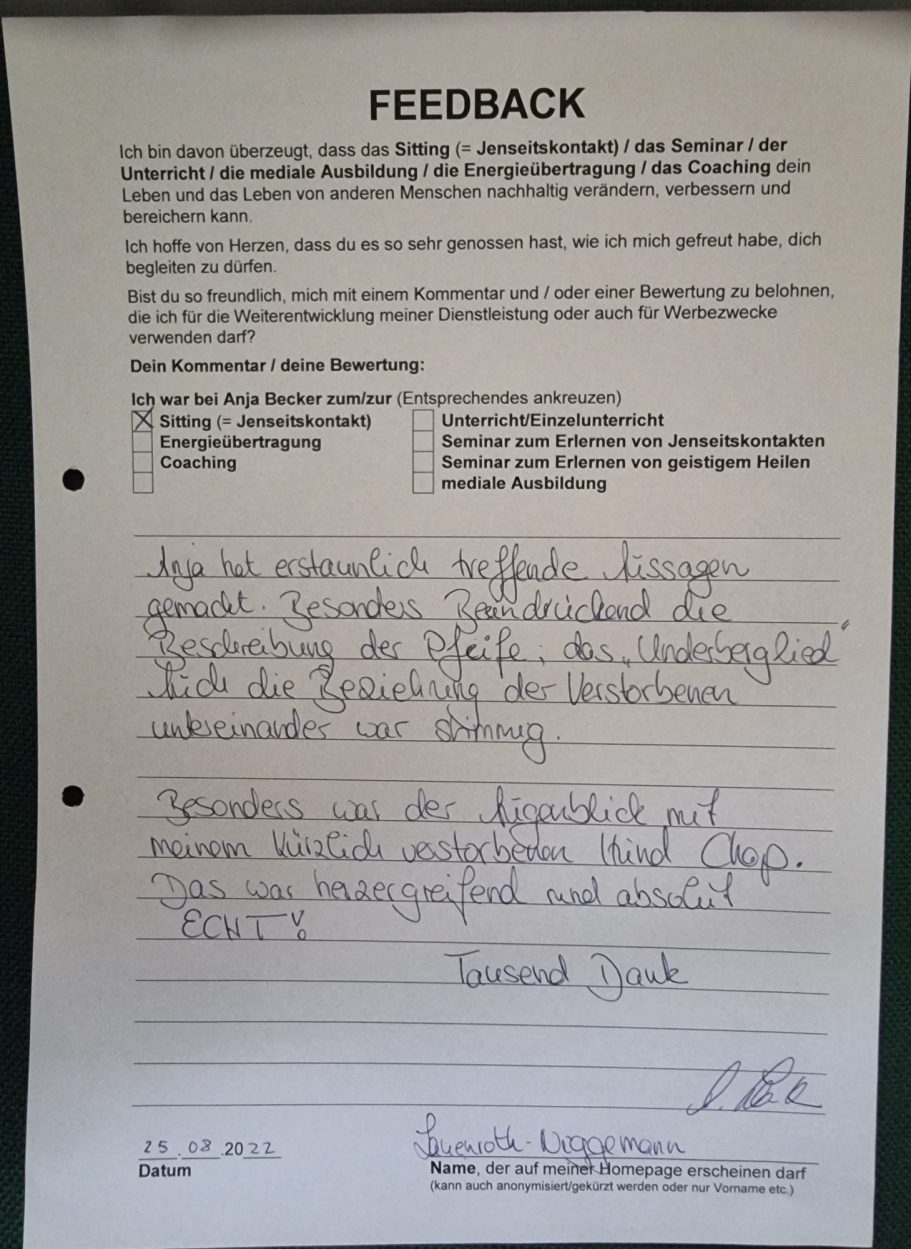 FEEDBACK
Ich bin davon überzeugt, dass das Sitting (= Jenseitskontakt) / das Seminar / der
Unterricht / die mediale Ausbildung / die Energieübertragung / das Coaching dein
Leben und das Leben von anderen Menschen nachhaltig verändern, verbessern und
bereichern kann.
Ich hoffe von Herzen, dass du es so sehr genossen hast, wie ich mich gefreut habe, dich
begleiten zu dürfen.
Bist du so freundlich, mich mit einem Kommentar und / oder einer Bewertung zu belohnen,
die ich für die Weiterentwicklung meiner Dienstleistung oder auch für Werbezwecke
verwenden darf?
Dein Kommentar / deine Bewertung:
Ich war bei Anja Becker zum/zur (Entsprechendes ankreuzen)
Sitting (= Jenseitskontakt)
Energieübertragung
Coaching
Unterricht/Einzelunterricht
Seminar zum Erlernen von Jenseitskontakten
Seminar zum Erlernen von geistigem Heilen
mediale Ausbildung
Anja hat erstaunlich treffende Aussagen
gemacht. Besonders Beeindrückend die
Beschreibung der Pfeife, das „Underberglied"
Auch die Beziehung der Verstorbenen
untereinander war stimmig.
Besonders war der Augenblick mit
meinem kürzlich verstorbenen Hund Chap.
Das war herzergreifend und absolut
ECHT!
Tausend Dank
25.08.2022
Datum
Lauenroth-Niggemann
Name, der auf meiner Homepage erscheinen darf
(kann auch anonymisiert/gekürzt werden oder nur Vorname etc.)